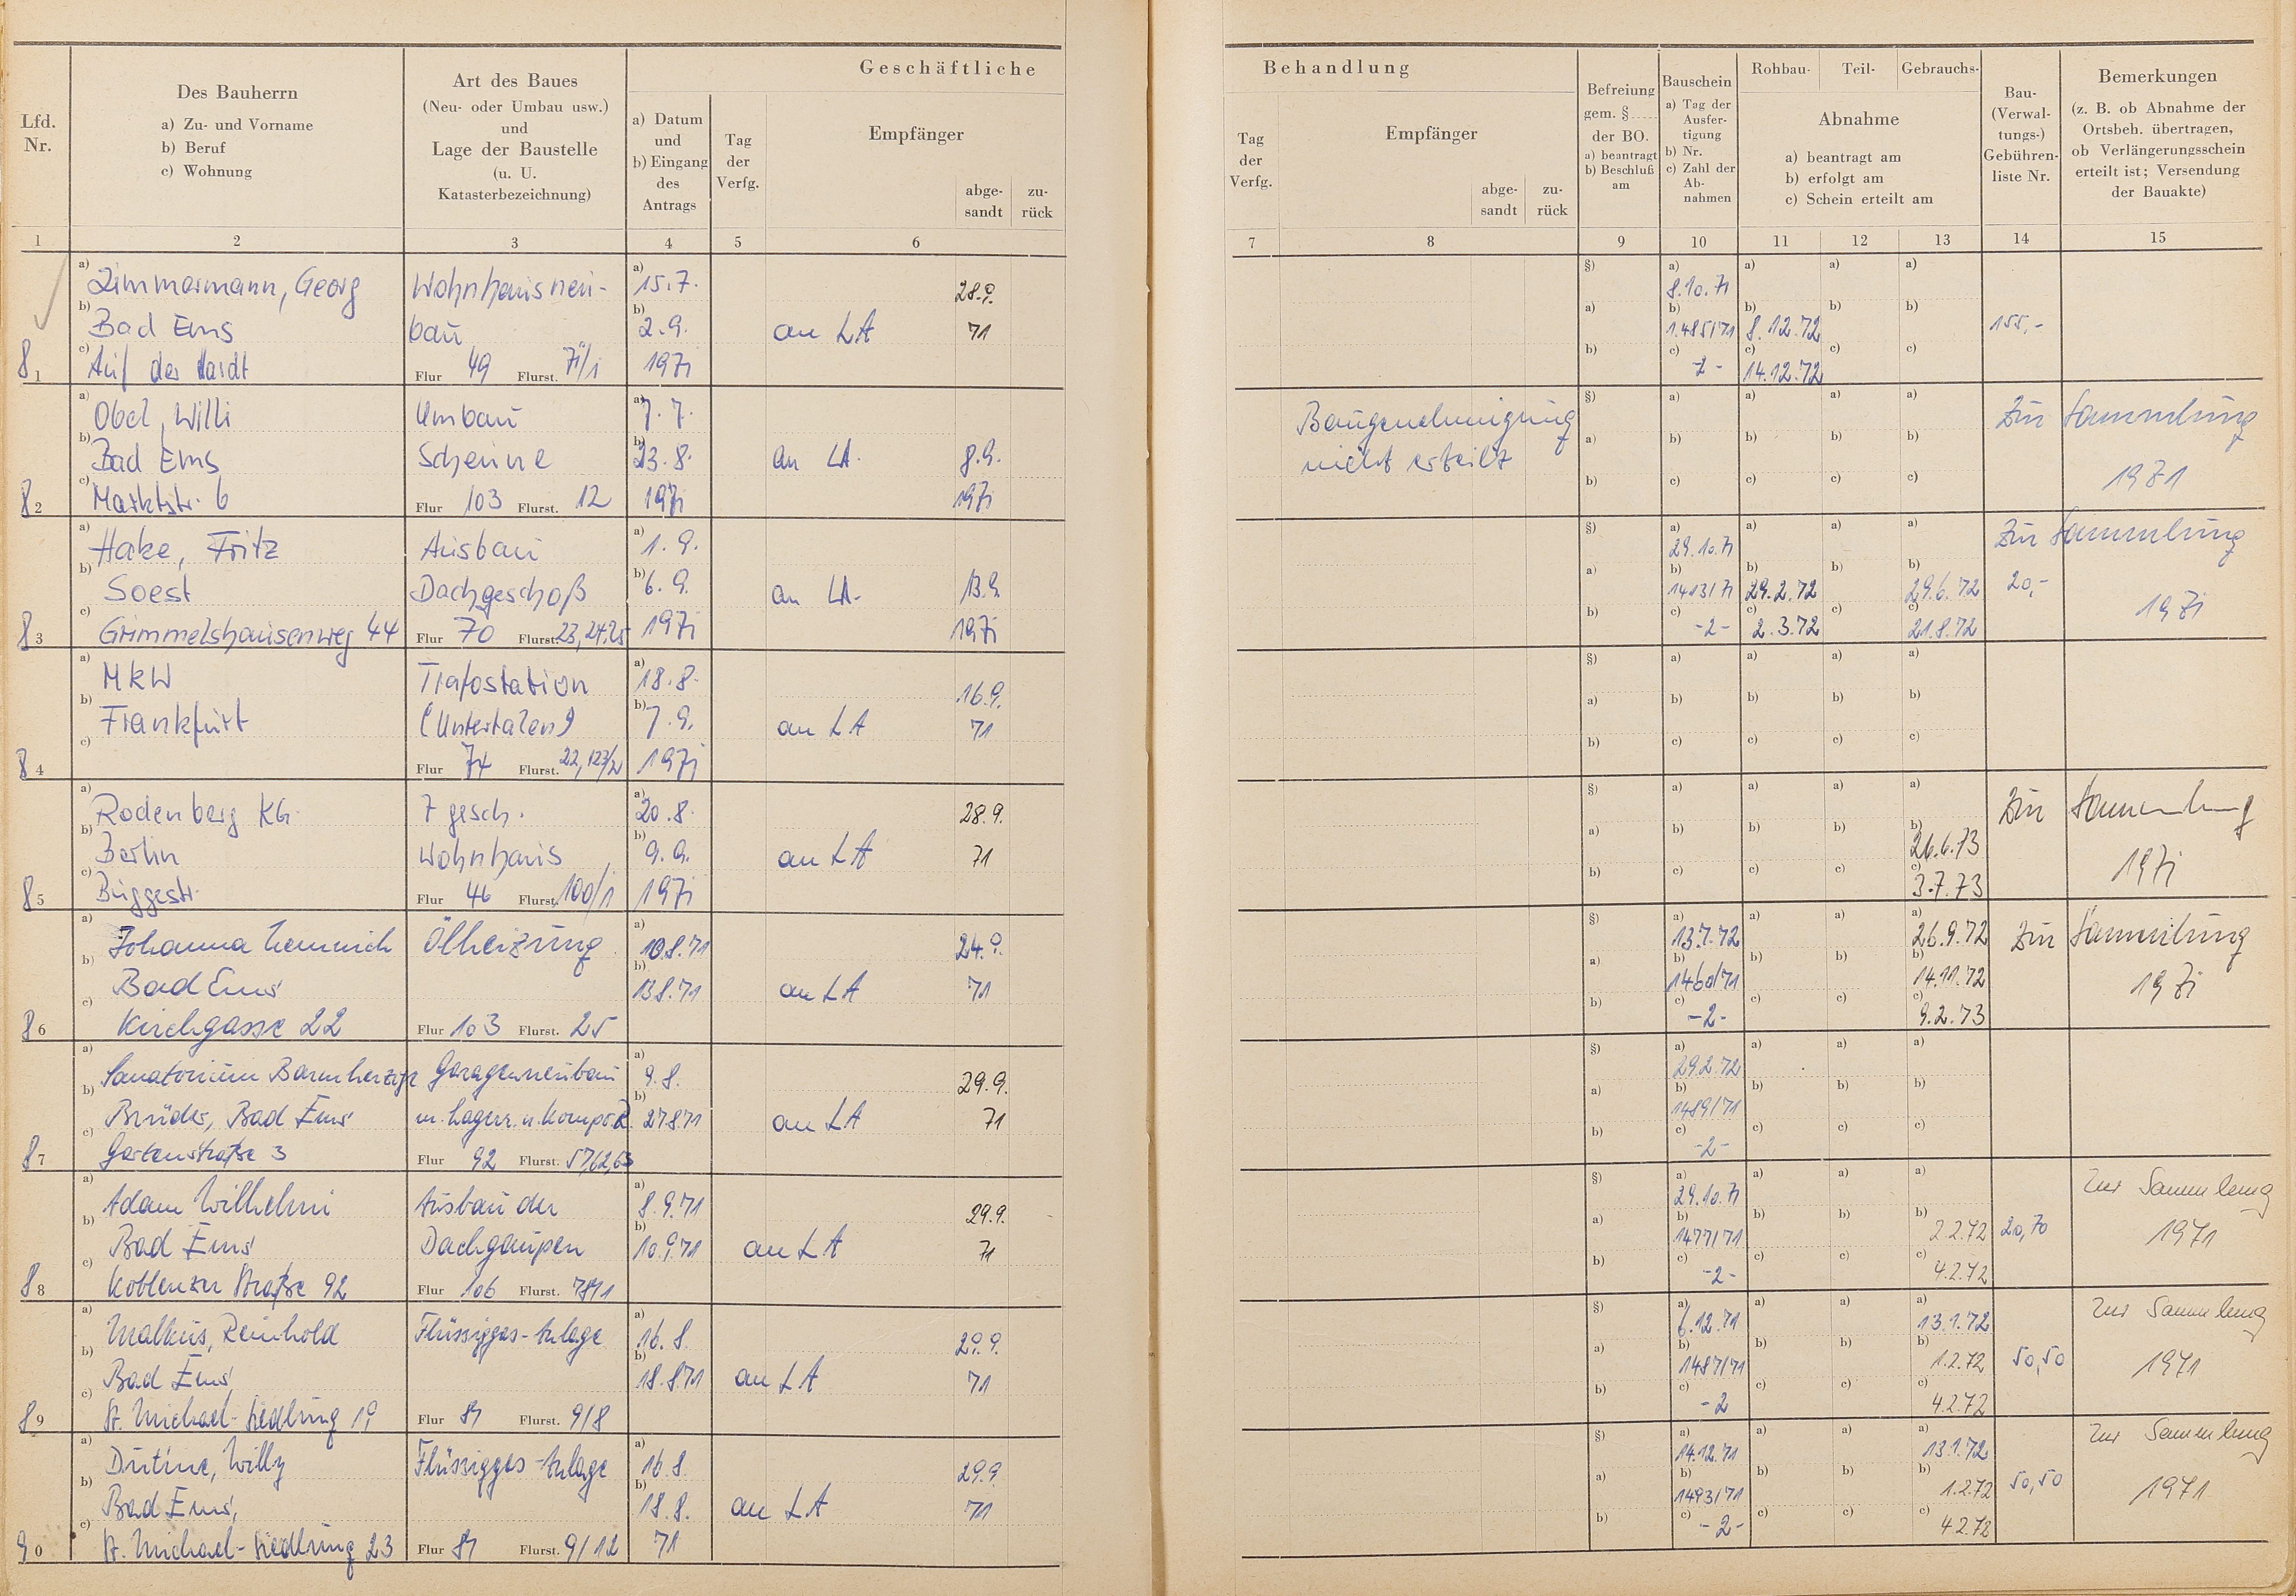 Geschäftliche
Behandlung
Lfd.
Nr.
Des Bauherrn
a) Zu- und Vorname
b) Beruf
c) Wohnung
Art des Baues
(Neu- oder Umbau usw.)
und
Lage der Baustelle
(u. U.
Katasterbezeichnung)
a) Datum
und
b) Eingang
des
Antrags
Tag
der
Verfg.
Empfänger
abge-
sandt
zu-
rück
Tag
der
Verfg.
Empfänger
abge-
sandt
zu-
rück
Befreiung
gem. §
der BO.
a) beantragt
b) Beschluß
am
Bauschein
a) Tag der
Ausfer-
tigung
b) Nr.
c) Zahl der
Ab-
nahmen
Rohbau-
Teil-
Gebrauchs-
Abnahme
a) beantragt am
b) erfolgt am
c) Schein erteilt am
Bau-
(Verwal-
tungs-)
Gebühren-
liste Nr.
Bemerkungen
(z. B. ob Abnahme der
Ortsbeh. übertragen,
ob Verlängerungsschein
erteilt ist; Versendung
der Bauakte)
1 2 3 4 5 6 7 8 9 10 11 12 13 14 15
a) Zimmermann, Georg Wohnhausneu- a) 15.7. 28.9. §) a) 8.10.71 a) a) a)
b) Bad Ems bau b) 2.9. an LA 71 a) b) 1.485/71 b) 8.12.72 b) b) 155,-
81 c) Auf der Hardt Flur 49 Flurst. 71/1 1971 b) c) -2- c) 14.12.72 c) c)
a) Obel, Willi Umbau a) 7.7. Baugenehmigung §) a) a) a) a) Zur Sammlung
b) Bad Ems Scheune b) 23.8. an LA. 8.9. nicht erteilt a) b) b) b) b)
82 c) Marktstr. 6 Flur 103 Flurst. 12 1971 1971 b) c) c) c) c) 1971
a) Hake, Fritz Ausbau a) 1.9. §) a) 29.10.71 a) a) a) Zur Sammlung
b) Soest Dachgeschoß b) 6.9. an LA. 13.9. a) b) 1413/71 b) 29.2.72 b) b) 29.6.72 20,-
83 c) Grimmelshausenweg 44 Flur 70 Flurst. 23,24,25 1971 1971 b) c) -2- c) 2.3.72 c) c) 21.8.72 1971
a) MKW Trafostation a) 18.8. 16.9. §) a) a) a) a)
b) Frankfurt b) 7.9. an LA 71 a) b) b) b) b)
84 c) Flur 74 Flurst. 22, 123/2 1971 b) c) c) c) c)
a) Rodenberg KG. 7 gesch. a) 20.8. 28.9. §) a) a) a) a) Zur Sammlung
b) Berlin Wohnhaus b) 9.9. an LA 71 a) b) b) b) b) 26.6.73
85 c) Buggestr. Flur 46 Flurst. 100/1 1971 b) c) c) c) c) 3.7.73 1971
a) Johanna Ölheizung a) 10.8.71 24.9. §) a) 13.7.72 a) a) a) 26.9.72 Zur Sammlung
b) Bad Ems b) 13.8.71 an LA 71 a) b) 1460/71 b) b) b) 14.11.72
86 c) Kirchgasse 22 Flur 103 Flurst. 25 b) c) -2- c) c) c) 9.2.73 1971
a) Sanatorium Barmherzige Garagenneubau a) 9.8. 29.9. §) a) 29.2.72 a) a) a)
b) Brüder, Bad Ems m. Lagerr. u. b) 27.8.71 an LA 71 a) b) 1489/71 b) b) b)
87 c) Gartenstraße 3 Flur 92 Flurst. 57,62,63 b) c) -2- c) c) c)
a) Adam Wilhelmi Ausbau der a) 8.9.71 29.9. §) a) 29.10.71 a) a) a) Zur Sammlung
b) Bad Ems Dachgaupen b) 10.9.71 an LA 71 a) b) 1477/71 b) b) b) 2.2.72 20,70 1971
88 c) Koblenzer Straße 92 Flur 106 Flurst. b) c) -2- c) c) c) 4.2.72
a) Malkus, Reinhold Flüssiggas-Anlage a) 16.8. 29.9. §) a) 6.12.71 a) a) a) 13.1.72 Zur Sammlung
b) Bad Ems b) 18.8.71 an LA 71 a) b) 1487/71 b) b) b) 1.2.72 50,50 1971
89 c) St. Michael-Siedlung 19 Flur 81 Flurst. 9/8 b) c) -2 c) c) c) 4.2.72
a) Dutine, Willy Flüssiggas-Anlage a) 16.8. 29.9. §) a) 14.12.71 a) a) a) 13.1.72 Zur Sammlung
b) Bad Ems, b) 18.8. an LA 71 a) b) 1493/71 b) b) b) 1.2.72 50,50 1971
90 c) St. Michael-Siedlung 23 Flur 81 Flurst. 9/12 71 b) c) -2- c) c) c) 4.2.72